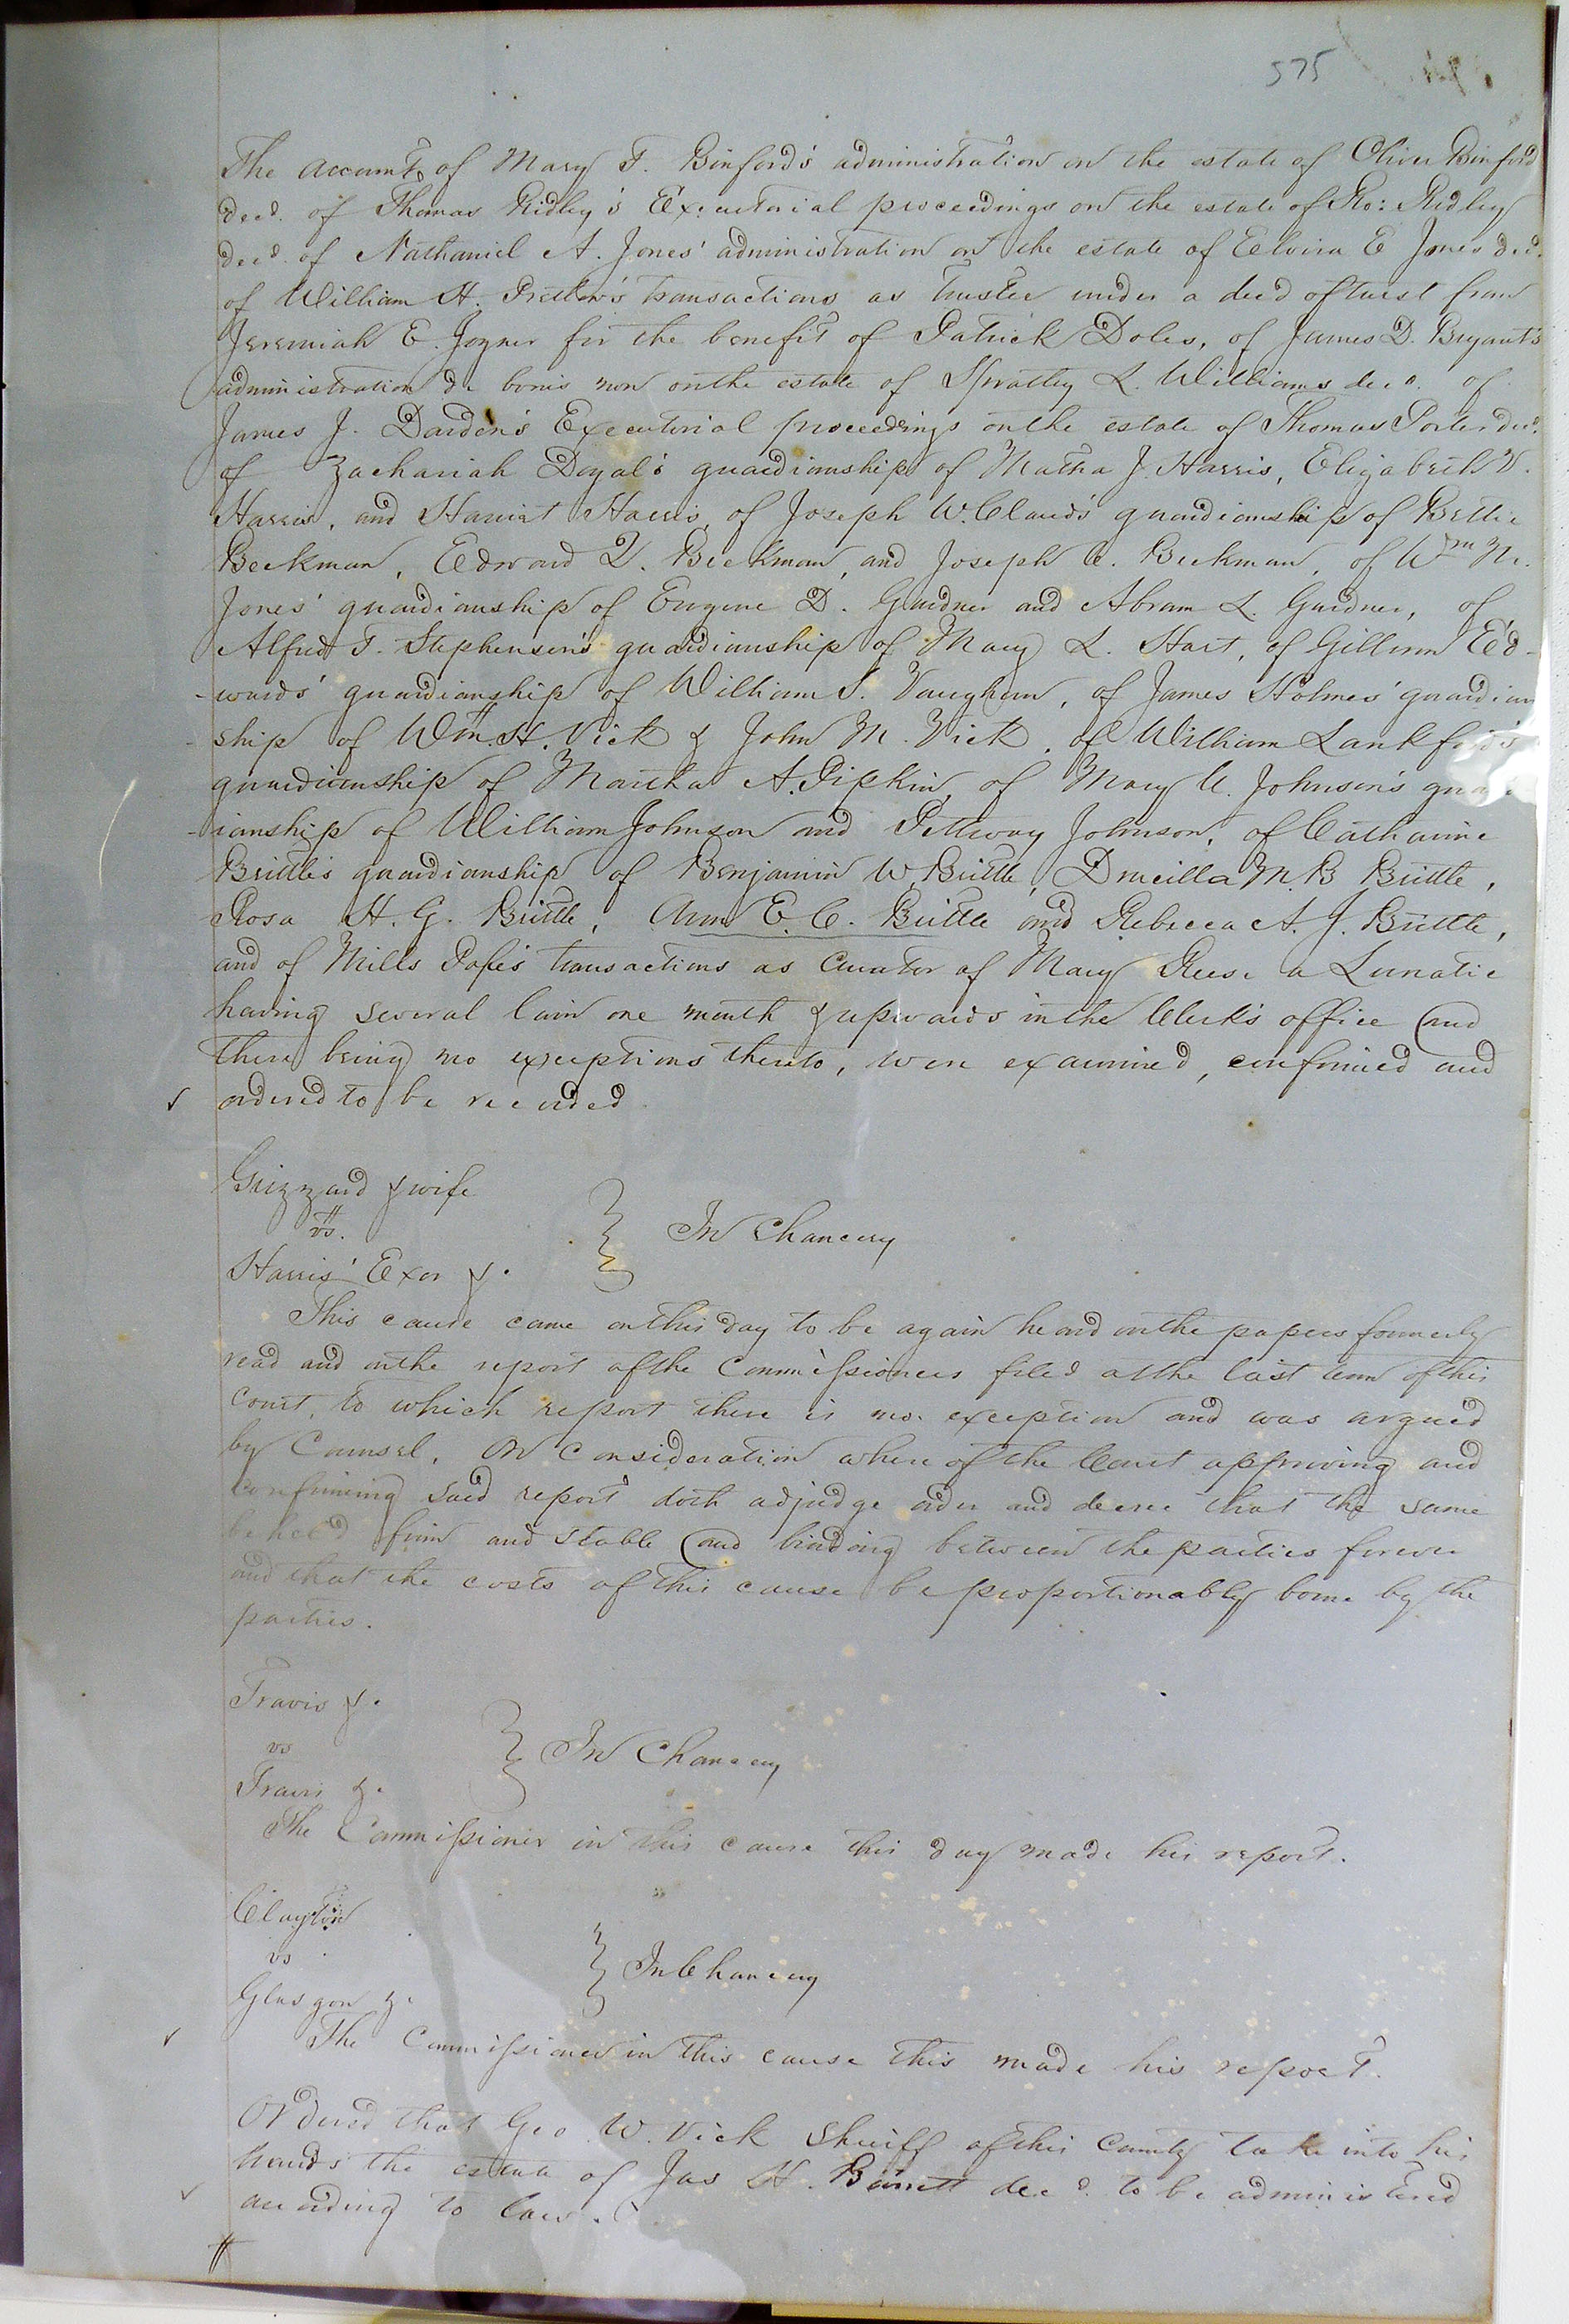 575
The accounts of Mary F. Binford's administration on the estate of Oliver Binford
decd. of Thomas Ridley's Executorial proceedings on the estate of Ro: Ridley
decd. of Nathaniel A. Jones' administration on the estate of Elvira E Jones decd.
of William H. Pretlow's transactions as trustee under a deed of trust from
Jeremiah E. Joyner for the benefit of Patrick Doles, of James D. Bryant's
administration de bonis non on the estate of Spratley L. Williams decd. of
James J. Darden's Executorial proceedings on the estate of Thomas Porter decd.
of Zachariah Doyal's guardianship of Matha J. Harris, Elizabeth V.
Harris, and Harriet Harris, of Joseph W. Claud's guardianship of Bettie
Beekman, Edward Q. Beekman, and Joseph C. Beekman, of Wm N.
Jones' guardianship of Eugene D. Gardner and Abram L. Gardner, of
Alfred T. Stephenson's guardianship of Mary L. Hart, of Gillium Ed-
-wards' guardianship of William S. Vaughan, of James Holmes' guardian
-ship of Wm. H. Vick & John M. Vick, of William Lankford's
guardianship of Martha A. Pipkin, of Mary U. Johnson's
-ianship of William Johnson and Pettway Johnson, of Catharine
Brittle's guardianship of Benjamin W. Brittle, Drucilla M. B Brittle,
Rosa H. G. Brittle, Ann E. C. Brittle and Rebecca A. J. Brittle,
and of Mills Pope's transactions as Curator of Mary Reese a Lunatic
having several lain one month & upwards in the Clerk's office and
there being no exceptions thereto, were examined, confirmed and
ordered to be recorded.
Grizzard & wife
vs.
Harris' Exor &.
In Chancery
This cause came on this day to be again heard on the papers formerly
read and on the report of the Commissioners filed at the last term of this
court, to which report there is no exception and was argued
by Counsel, On Consideration where of the Court approving and
confirming said report doth adjudge order and decree that the same
be held firm and stable and binding between the parties forever
and that the costs of this cause be proportionably borne by the
parties.
Travis &.
vs
Travis &.
In Chancery
The Commissioner in this cause this day made his report.
Clayton
vs
Glasgow &.
In Chancery
The Commissioner in this cause this made his report.
Ordered that Geo W. Vick Sheriff of this County take into his
hands the estate of Jas H. Barrett decd. to be administered
according to law.